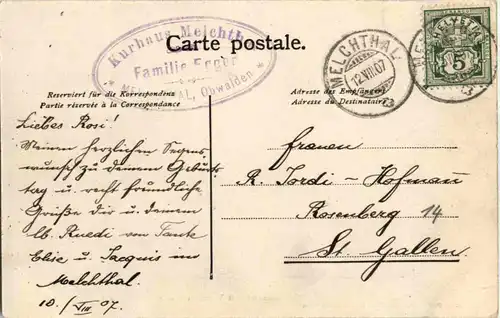 Carte postale.
Kurhaus Melchth
Familie Egger
MELCHTHAL, Obwalden *
MELCHTHAL
12.VIII.07
HELVETIA
5
Reserviert für die Korrespondenz
Partie réservée à la Correspondance
Adresse des Empfängers
Adresse du Destinataire
Liebes Rosi!
Meinen herzlichen Segens
wunsch zu deinem Geburts
tag u. recht freundliche
Grüße dir u. deinem
lb. Ruedi von Tante
Elise u. Jacques in
Melchthal.
10./VIII 07.
Frauen
R. Jordi - Hofmann
Rosenberg 14
St. Gallen